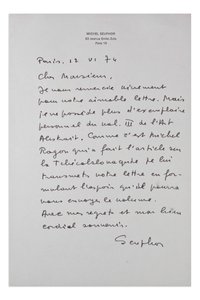 MICHEL SEUPHOR
83 avenue Emile Zola
Paris 15
Paris, 12 VI 74
Cher Monsieur,
Je vous remercie vivement
pour votre aimable lettre. Mais
je ne possède plus d'exemplaire
personnel du vol. III de l'Art
Abstrait. Comme c'est Michel
Ragon qui a fait l'article sur
la Tchécoslovaquie je lui
transmets votre lettre en for-
mulant l'espoir qu'il pourra
vous envoyer le volume.
Avec mes regrets et mon bien
cordial souvenir.
Seuphor